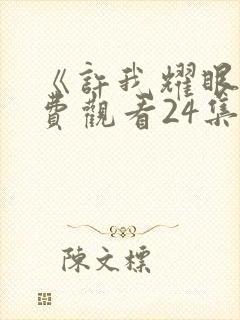 《許我耀眼
費觀看24集
陳文標